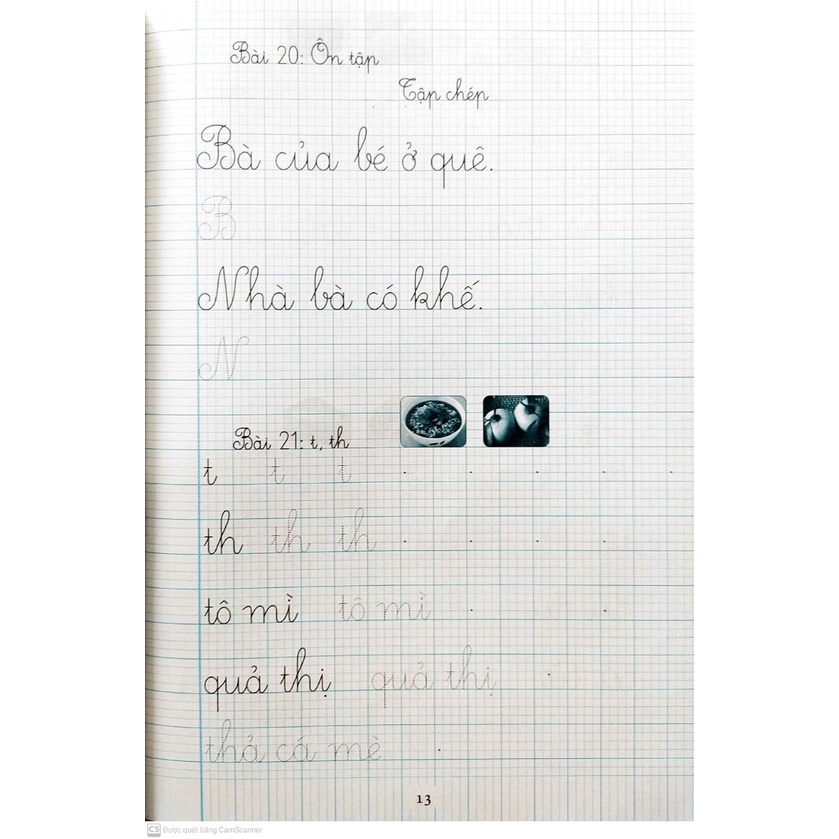 Bài 20: Ôn tập
Tập chép
Bà của bé ở quê.
B
Nhà bà có khế.
N
Bài 21: t, th
t t t
th th th
tô mì tô mì
quả thị quả thị
thả cá mè
13
CS Được quét bằng CamScanner